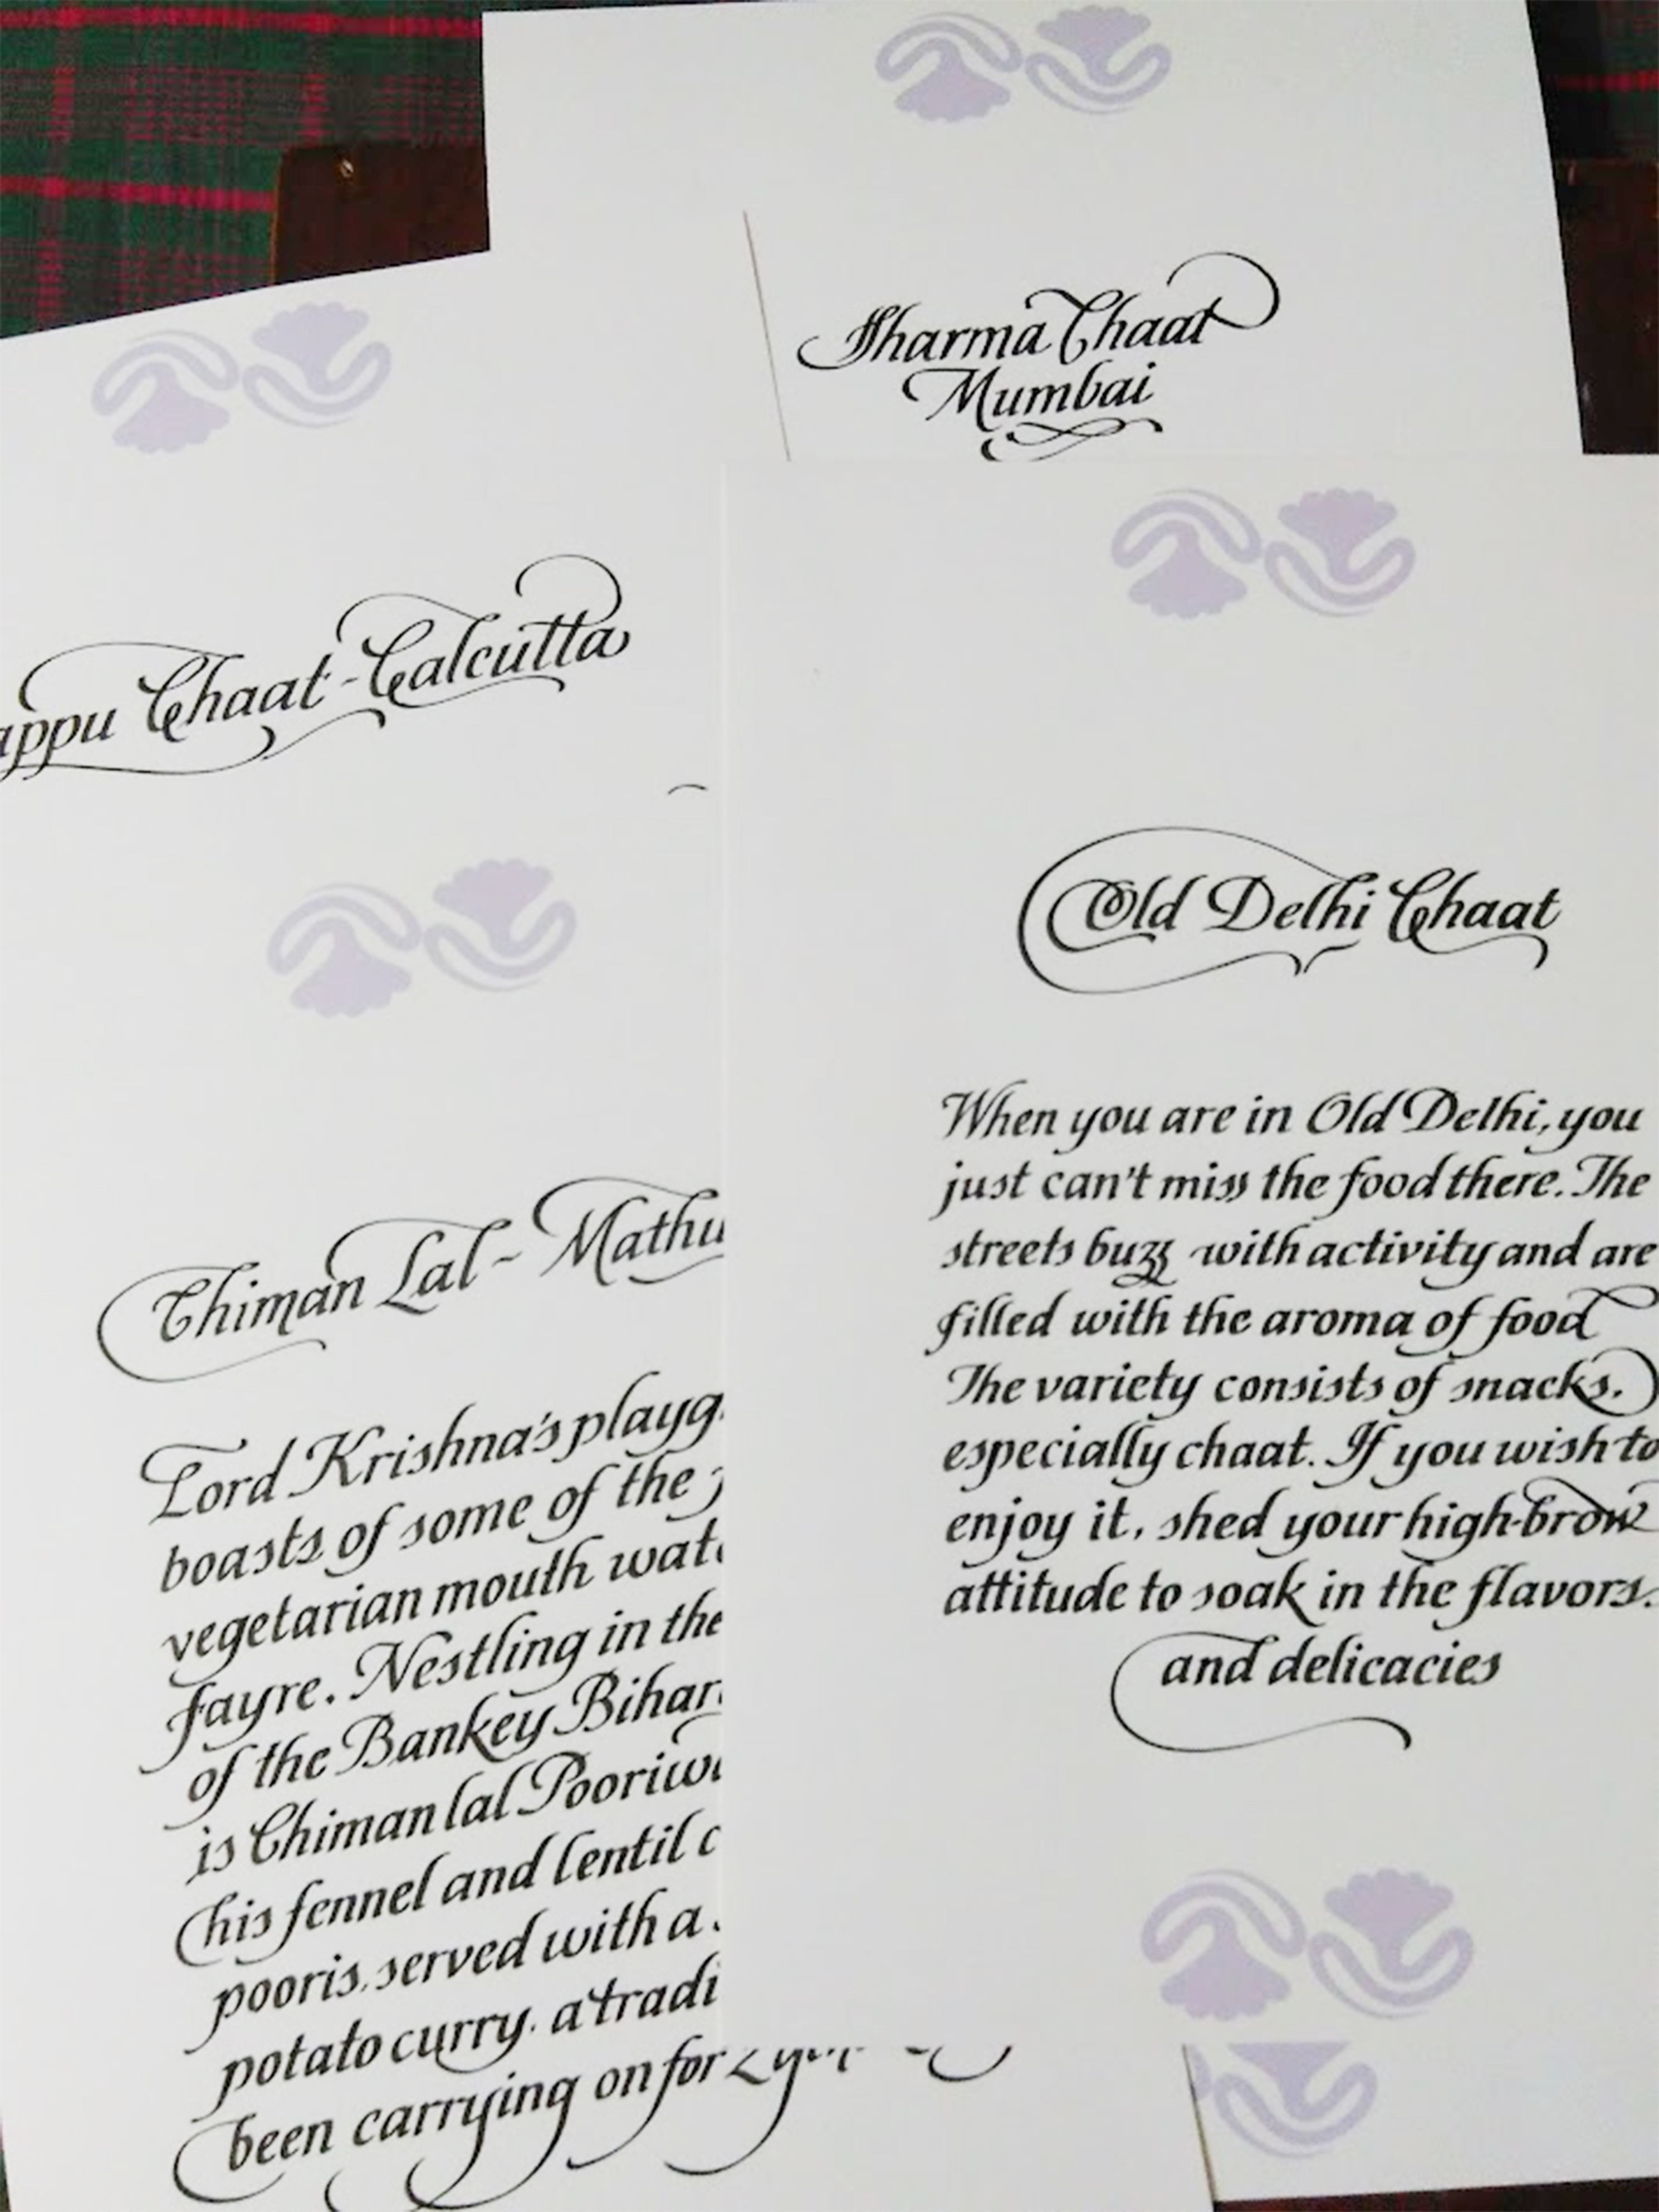 Sharma Chaat
Mumbai
Chaat - Calcutta
Old Delhi Chaat
When you are in Old Delhi, you
just can't miss the food there. The
streets buzz with activity and are
filled with the aroma of food
The variety consists of snacks.
especially chaat. If you wish to
enjoy it, shed your high-brow
attitude to soak in the flavors.
and delicacies
Chiman Lal -
Lord Krishna's
boasts of some of the
vegetarian mouth
fayre. Nestling in the
of the Bankey
is Chiman lal
his fennel and lentil
pooris, served with a
potato curry. a
been carrying on for